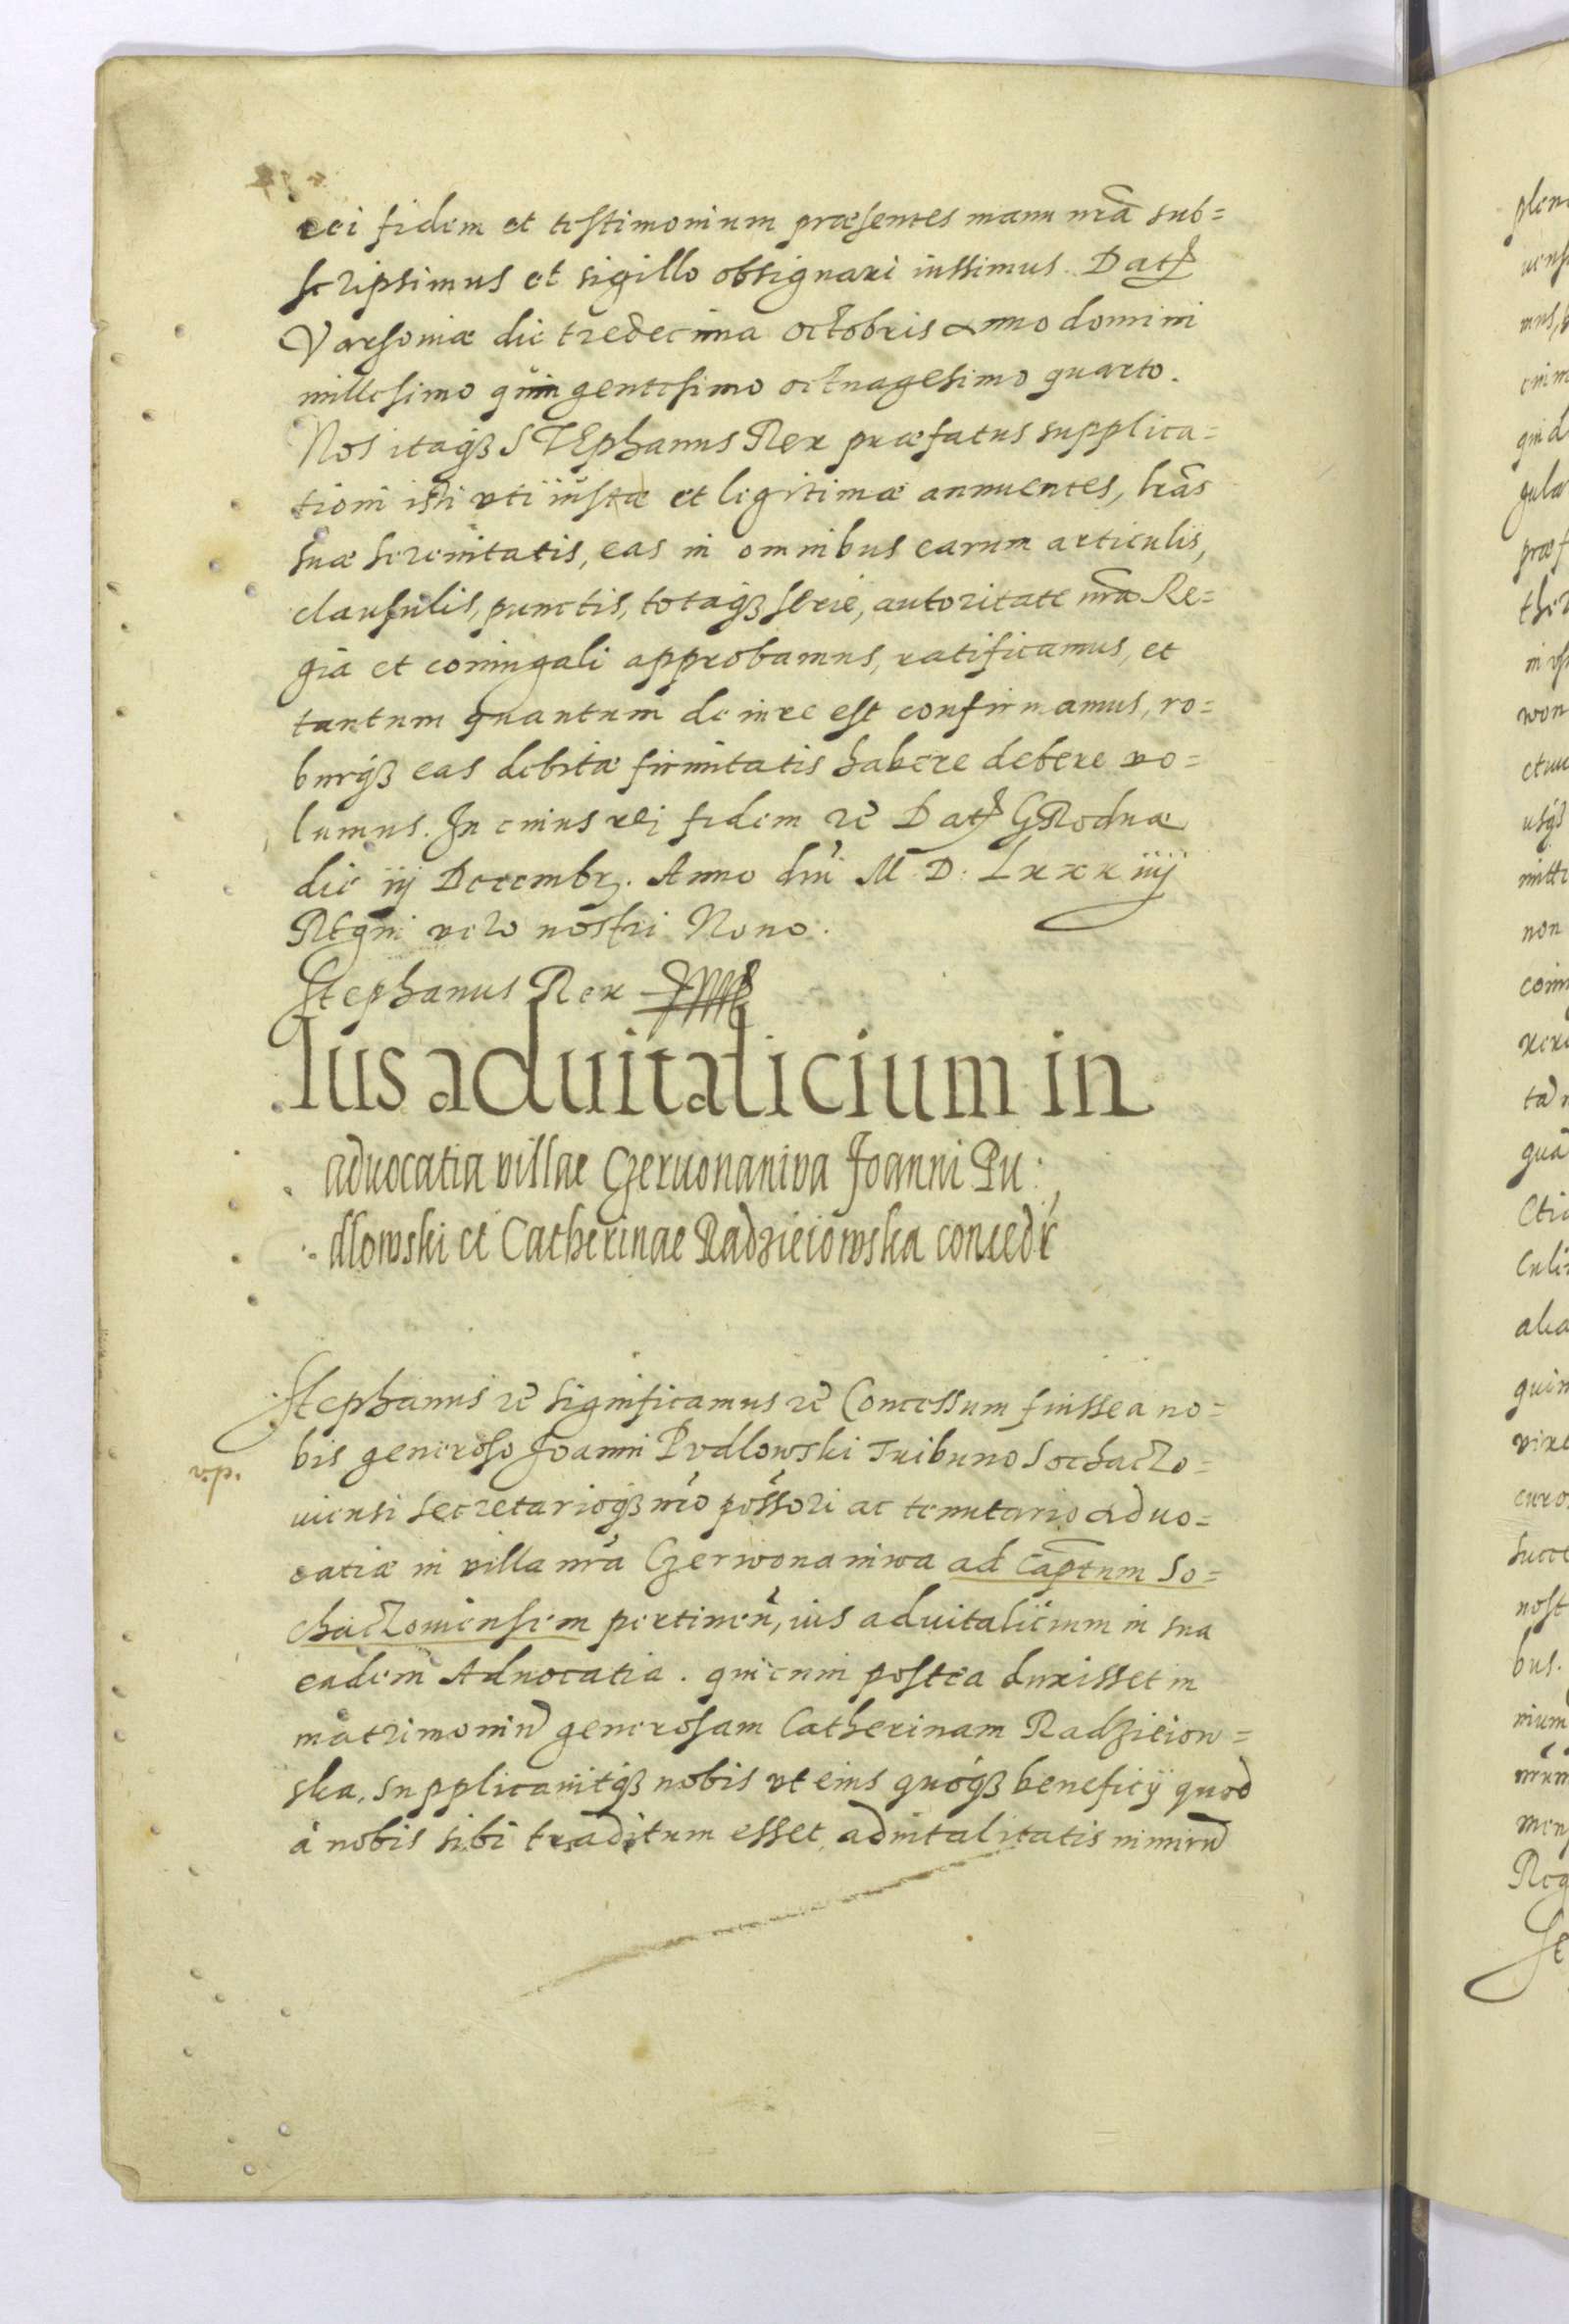 rei fidem et testimonium præsentes manu nrã sub=
scripsimus et sigillo obsignari iussimus. Dat
Varsoniæ die tredecima octobris anno domini
millesimo quingentesimo octuagesimo quarto.
Nos itaqȝ STEphanus Rex præfatus supplica=
tioni isti uti iustæ et legitimæ annuentes, lrãs
suæ serenitatis, eas in omnibus earum articulis,
clausulis, punctis, totaqȝ serie, autoritate nrã Re=
gia et coniugali approbamus, ratificamus, et
tantum quantum de iure est confirmamus, ro=
burqȝ eas debitæ firmitatis habere debere vo=
lumus. In cuius rei fidem rc̃ Dat GRodnæ
die iij Decembr. Anno dni M. D. Lxxxiiij
Regni vero nostri Nono.
Stephanus Rex
Ius aduitalicium in
aduocatia villae Czeruonaniva Joanni Pu:
dlowski et Catherinae Radzieiowska concedr̃
Stephanus rc̃ significamus rc̃ Concessum fuisse a no=
bis generoso Joanni Pudlowski Tribuno Sochaczo=
v.p.
uiensi secretarioqȝ nrõ possori ac tenutario aduo=
catiæ in villa nrã Czerwonaniwa ad Cap̃tum So=
chaczouiensem pertineñ, ius aduitalicium in sua
eadem Aduocatia. qui cum postea duxisset in
matrimoniũ generosam Catherinam Radzieiow=
ska, supplicauitqȝ nobis ut eius quoqȝ beneficij quod
à nobis sibi traditum esset, aduitalitatis nimirũ